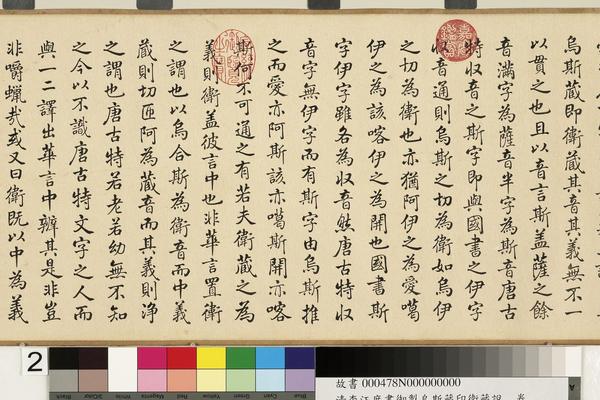 烏斯藏即衛藏其音其義無不一
以貫之也且以音言斯蓋薩之餘
音滿字為薩音半字為斯音唐古
特收音之斯字即與國書之伊字
收音通則烏斯之切為衛如烏伊
之切為衛也亦猶阿伊之為愛噶
伊之為該喀伊之為開也國書斯
字伊字雖各為收音然唐古特收
音字無伊字而有斯字由烏斯推
之而愛亦阿斯該亦噶斯開亦喀
斯何不可通之有若夫衛藏之為
義則衛蓋彼言中也非華言置衛
之謂也以烏合斯為衛音而中義
藏則切匝阿為藏音而其義則淨
之謂也唐古特若老若幼無不知
之今以不識唐古特文字之人而
與一二譯出華言中辨其是非豈
非嚼蠟哉或又曰衛既以中為義
2
故書 000478N000000000
Black
3/Color
White
Magenta
Red
Yellow
Green
Cyan
Blue